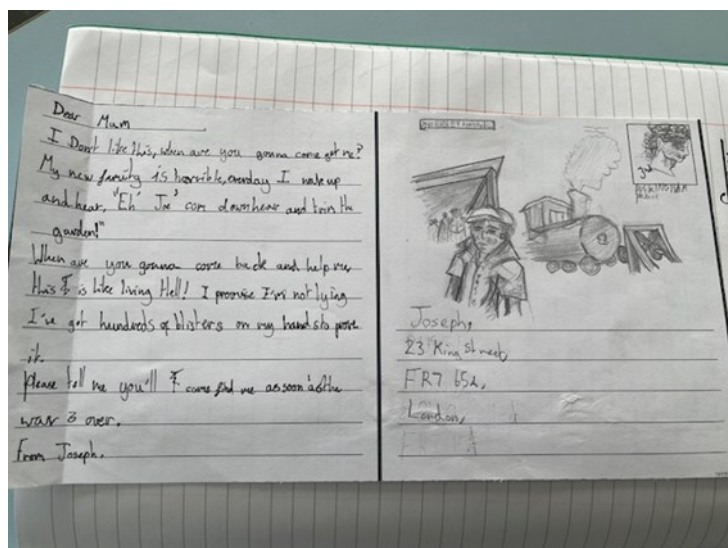 Dear Mum
I Don't like this, when are you gonna come get me?
My new family is horrible, everyday I wake up
and hear, "Eh' Joe' com downhear and trim the
garden!"
When are you gonna come back and help me
this is like living Hell! I promise I'm not lying
I've got hundreds of blisters on my hands to prove
it.
Please tell me you'll come find me as soon as the
war is over.
From Joseph.
Joseph,
23 King street,
FR7
London,